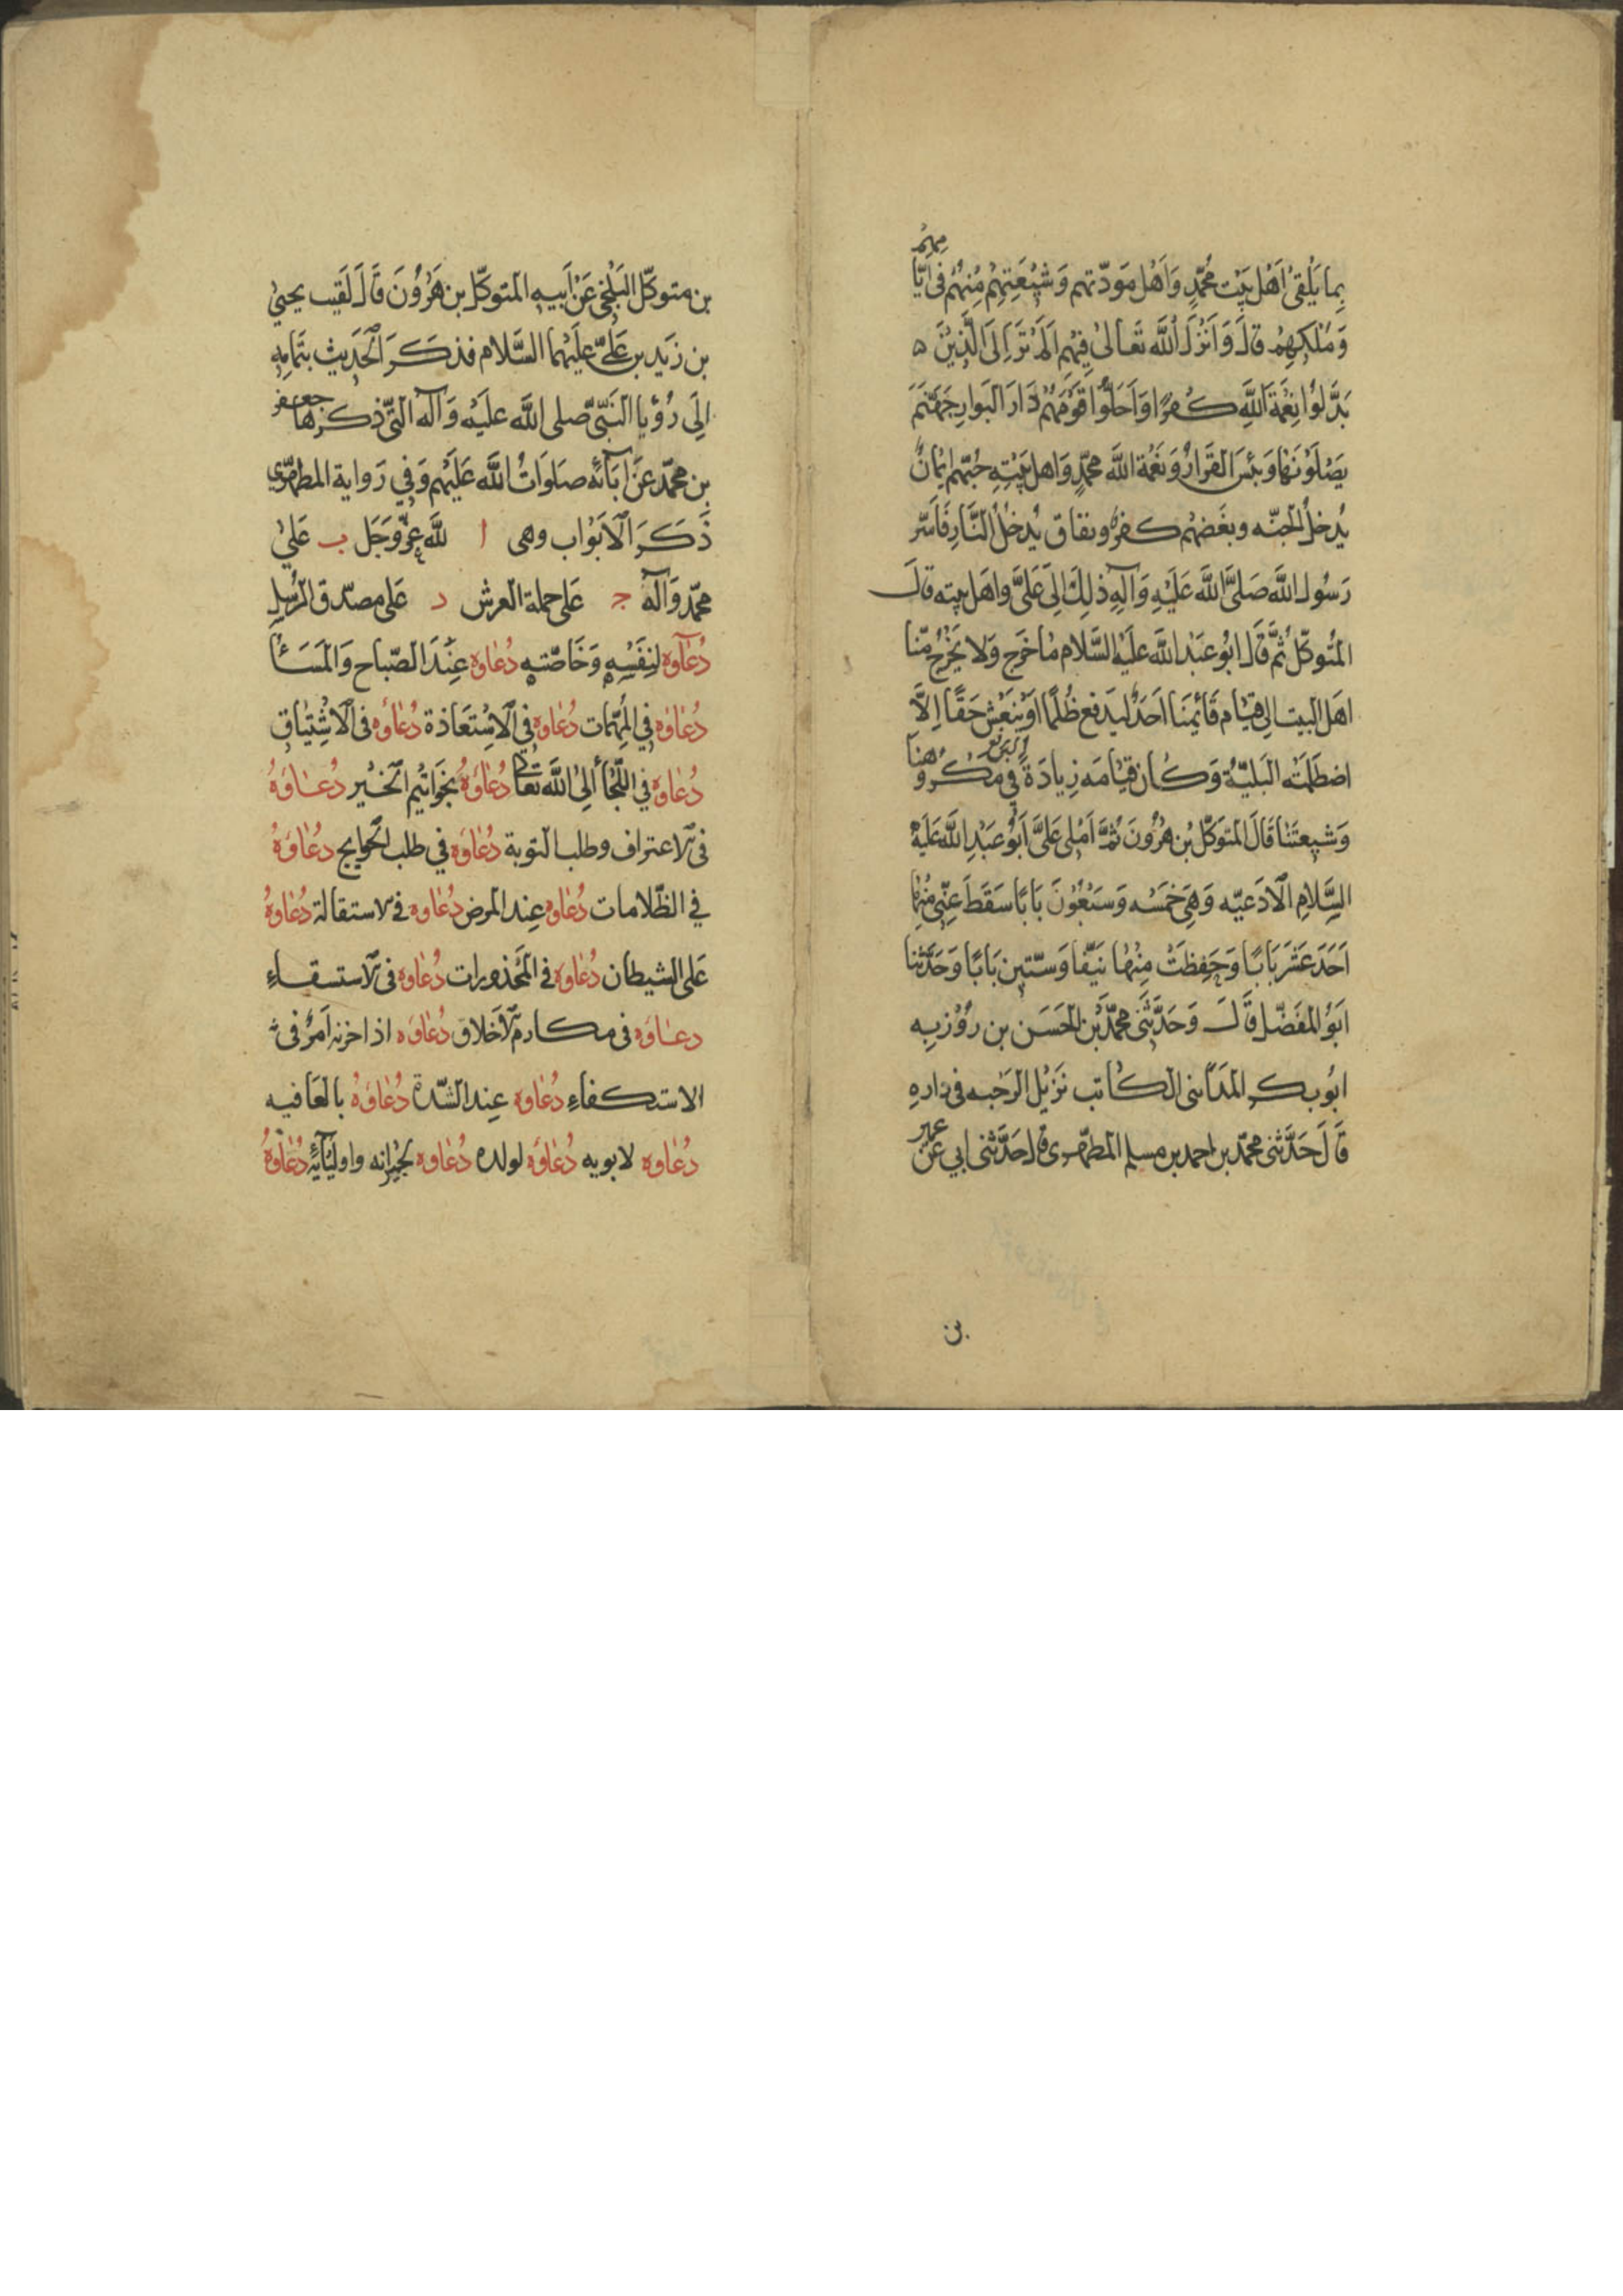 بِما يَلْقىٰ اَهْل بَيْت مُحَمَّدٍ وَاَهْل مَوَدّتهم وَشيْعَتِهِمْ مِنهُم فى ايّامِهِم
وَمُلكِهِمْ قالَ وَاَنزَلَ اللّهَ تَعالىٰ فِيهِم اَلَمْ تَرَ اِلَى الَّذِيْنَ
بَدَّلوُا نِعْمَةَ اللَّهِ كُفرًا وَاَحَلّوُا قَوْمَهُمْ دَارَ البَوارِ جَهَنَّمَ
يَصْلَوْنَهَا وَبئسَ القَرَارُ وَنعْمَة اللَّه محمّدٍ وَاهل بَيْتِهِ حُبّهم ايمٰانٌ
يُدخلُ الجنّه وبغَضهُم كفرٌ ونفاق يُدخلُ النَّارَ فَاَسَرّ
رَسُول اللَّه صَلىَّ اللَّه عَلَيْهِ وَآلِهِ ذلِكَ اِلىَ عَلىَّ واهَل بيته قالَ
المُتوكّل ثمَّ قَالَ ابُو عَبْدِ اللَّه عَليَه السَّلام مٰا خَرَج وَلا يَخْرُج مّنا
اهَل البيت الى قيٰام قَائِمِنَا اَحَدٌ ليَدفع ظُلمًا اَوْ يَنعَش حَقًّا اِلاَّ
اضطَلمَته البَليّةُ وَكٰان قيٰامَه زِيادَةً فِي مَكرُوهنا
وَشيعتَنا قَالَ المتوَكّل بْن هٰرُونَ ثمَّ اَمْلى عَلىَّ اَبُو عَبْدِ اللَّه عَليَهْ
السَّلامِ الاَدَعيّه وَهِيَ خَمْسَه وَسَبْعُونَ بَابًا سَقَطَ عَنِّي مِنْهٰا
اَحَدَ عَشَرَ بَابًا وَحَفِظتُ مِنْهٰا نَيّفا وَسّتين بَابًا وَحَدَّثنا
ابَوُ المفَضّل قَالَ وَحَدَّثنى محمّدَ بْن الحَسَن بن رُوزبه
ابُو بكر المَدَائنى الكاتب نَزيُل الرَحبه فى دارهِ
قَالَ حَدَّثنى محمّد بن احمد بن مسلم المطهّرى قالَ حَدَّثنى ابي عَن عمير
بن
بن متوكّل البَلْخى عَنْ اَبيه المتوَكّل بن هٰرُونَ قَالَ لَقيت يحيىٰ
بن زَيد بن عَلىّ عليَهما السَّلام فذكَرَ الحَدَيث بتَمامِهِ
اِلَى رُؤيا النَبّى صّلى اللَّه عليَهْ وَآله التّى ذكرها جعفر
بن محمّد عَنْ اٰبَائه صَلوَاتُ اللَّه عَليَهم وَفي رَواية المطهّري
ذَكَرَ الاَبْوٰاب وهى ا للَّه عزَّوَجَل ب عَلىٰ
محمّد وَآلهْ ج عَلى حملة العرش د عَلى مصدّق الرُسل
دُعٰآوه لنِفَسْهِ وَخَاصّتهِ دُعٰاوه عِنْدَ الصّباح وَالمَسَاْ
دُعٰاوه في المُهمّات دُعٰاوه في الاسْتعَاذة دُعٰاوُه فى الاشْتيَاق
دُعٰاوه في اللَّجأ اِلىٰ اللَّه تعَالى دُعٰاوَهُ بخَواتيم الخَيْر دعٰاوَهُ
فى الاعتراف وطلب التوبة دُعٰاوَه في طلب الحوايج دعٰاوَهُ
في الظّلامات دُعٰاوه عِند المرض دُعٰاوه فى الاستقالة دُعٰاوهُ
عَلى الشيطان دُعٰاوه فى المَحْذورات دُعٰاوه فى الاستسقاءِ
دعٰاوَه فى مكارم الاَخَلاق دُعٰاوَه اذا حزنه اَمرٌ فى
الاستكفاءِ دُعٰاوه عِند الشّدّة دُعٰاوَهُ بالعَافيه
دُعٰاوه لابويه دُعٰاوَه لولده دُعٰاوه لجيرانه واوليٰآئِهِ دُعٰاوهُ